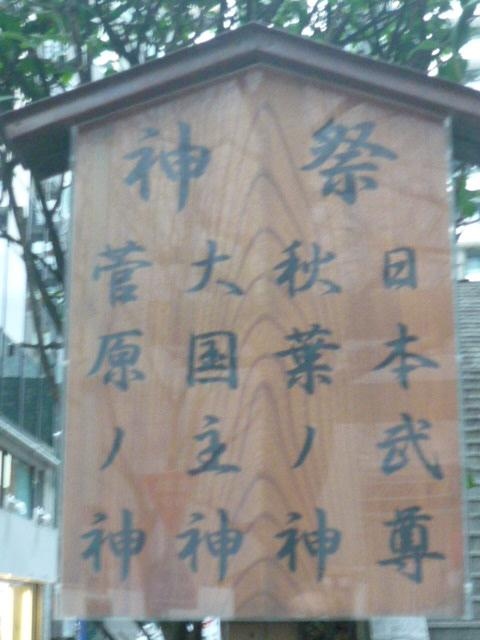 祭神
日本武尊
秋葉ノ神
大国主神
菅原ノ神